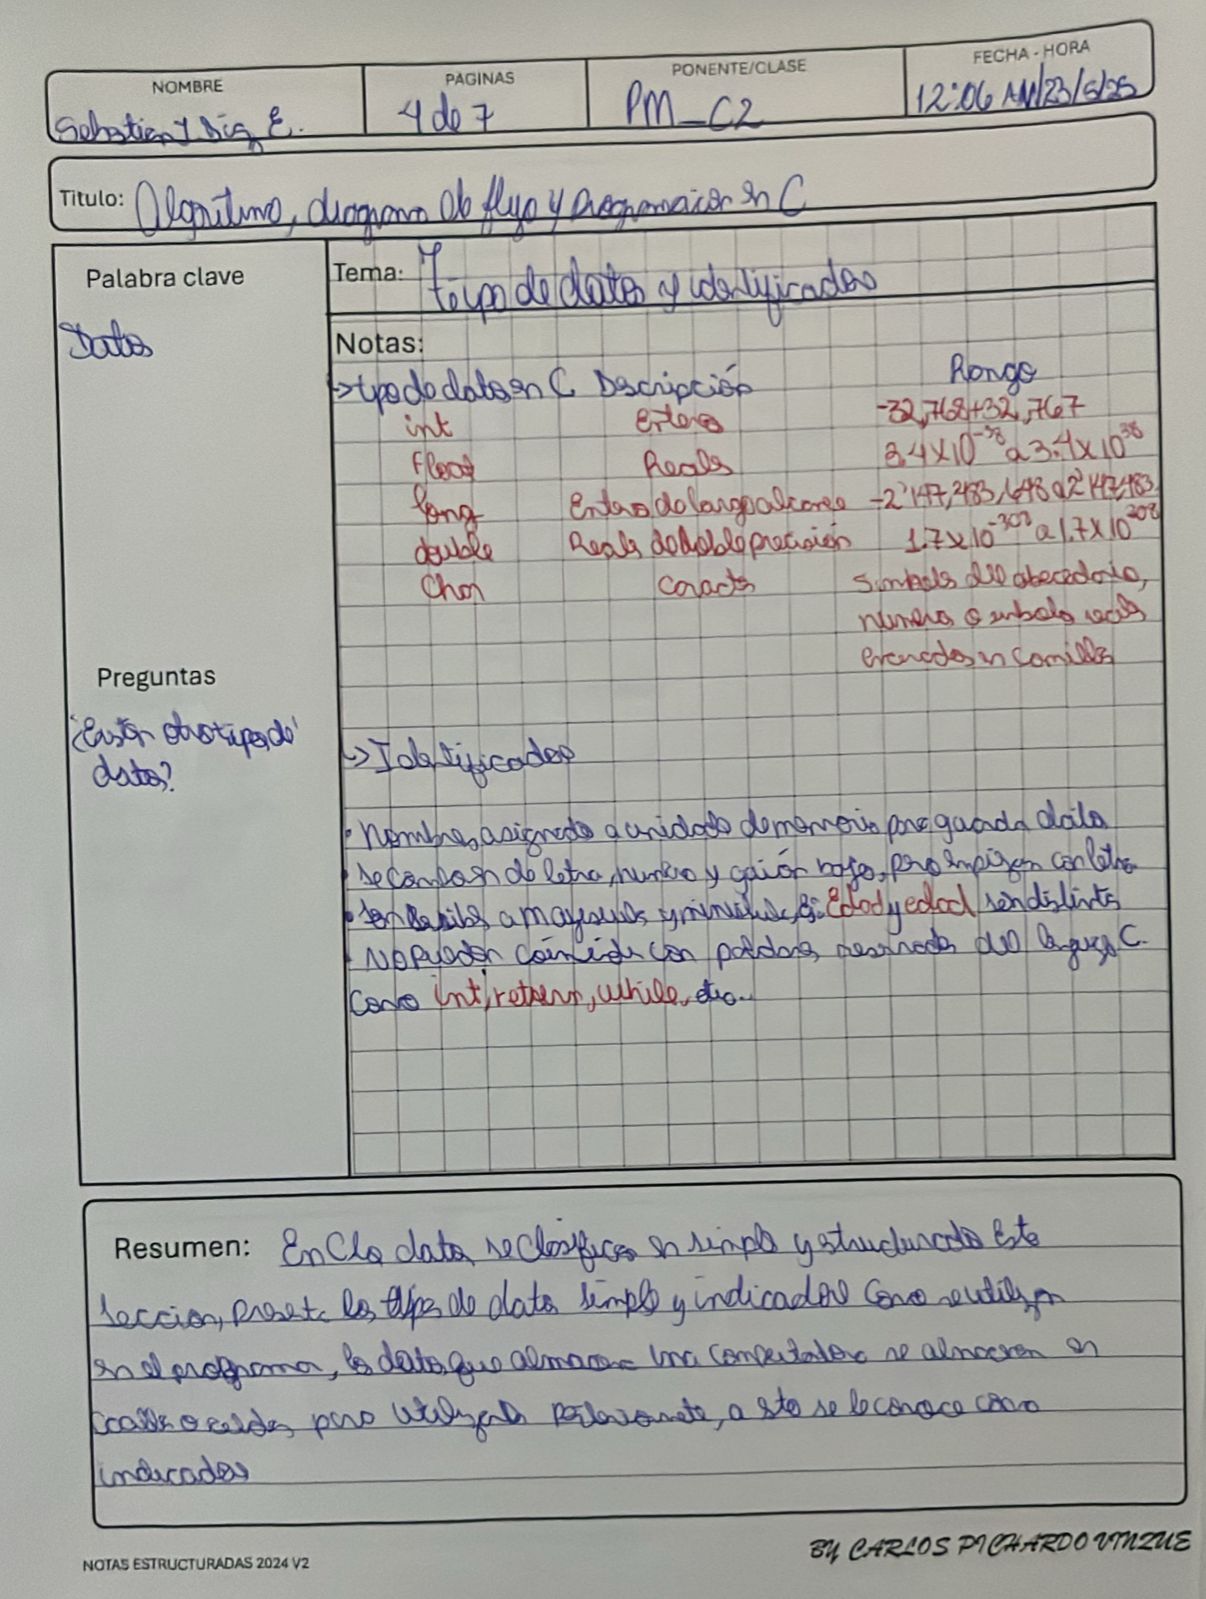 NOMBRE
PAGINAS
PONENTE/CLASE
FECHA - HORA
4 de 7
PM_C2
12:06 AM/23/6/25
Titulo: Algoritmo, diagrama de flujo y programacion en C
Palabra clave
Tema: tipo de datos y identificadores
Datos
Notas:
→ tipo de datos en C Descripción Rango
int Enteros -32,768 a +32,767
float Reales 3.4x10⁻³⁸ a 3.4x10³⁸
long Enteros de largo alcance -2'147,483,648 a 2'147,483
double Reales de doble precisión 1.7x10⁻³⁰⁸ a 1.7x10³⁰⁸
Char Caracter simbolos del abecedario,
numeros o simbolos
encerrados en comillas
Preguntas
¿Existen otro tipo de
datos?
→ Identificadores
• Nombres asignado a unidades de memoria para guardar datos
• Se componen de letra, numero y guión bajo, pero empiezan con letra
• Son sensibles a mayusculas y minusculas, Ej: Edad y edad son distintos
• No pueden coincidir con palabras reservadas del lenguaje C.
Como int, return, while, etc..
Resumen: En C los datos se clasifican en simple y estructurado Este
seccion, presenta los tipos de dato simple y indicadores como se utilizan
en el programa, los datos que almacena una computadora se almacenan en
casillas o celdas para utilizarla posteriormente, a esto se le conoce como
indicadores
NOTAS ESTRUCTURADAS 2024 V2
BY CARLOS PICHARDO VINZUE